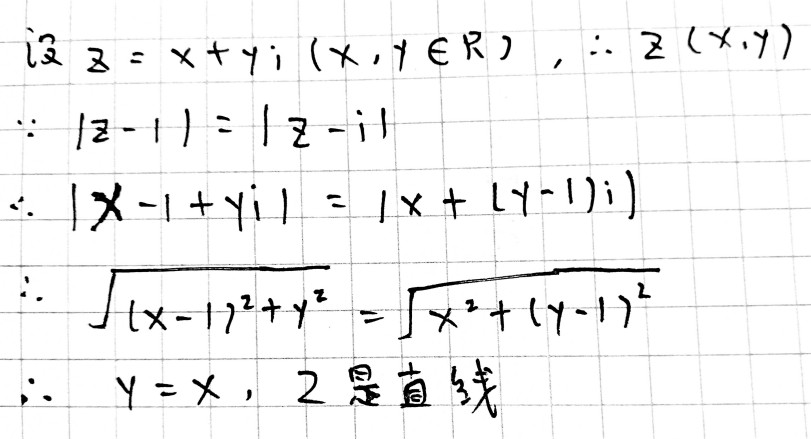 设 z = x + yi (x, y ∈ R) , ∴ z (x, y)
∵ |z - 1| = |z - i|
∴ |x - 1 + yi| = |x + (y - 1)i|
∴ √((x - 1)² + y²) = √(x² + (y - 1)²)
∴ y = x , z 是直线